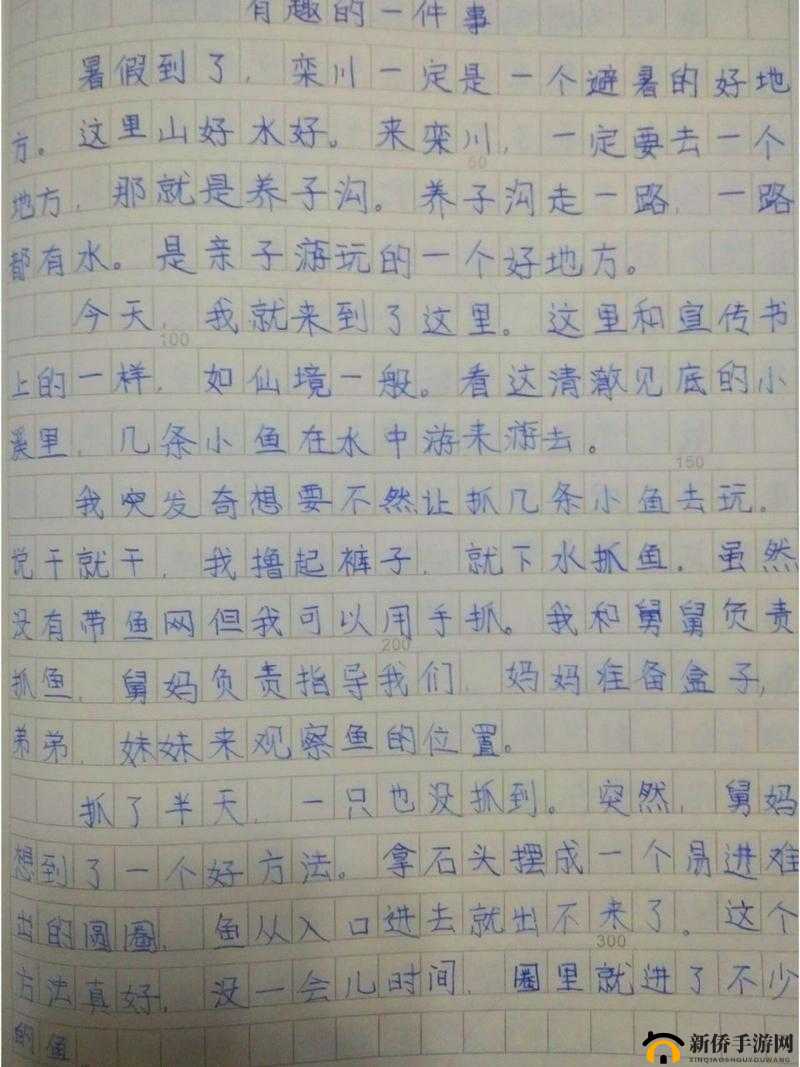 有趣的一件事
暑假到了，栾川一定是一个避暑的好地
方。这里山好水好。来栾川，一定要去一个
地方，那就是养子沟。养子沟走一路，一路
都有水。是亲子游玩的一个好地方。
今天，我就来到了这里。这里和宣传书
100
上的一样，如仙境一般。看这清澈见底的小
溪里，几条小鱼在水中游来游去。
150
我突发奇想要不然让抓几条小鱼去玩。
说干就干，我撸起裤子，就下水抓鱼。虽然
没有带鱼网但我可以用手抓。我和舅舅负责
200
抓鱼，舅妈负责指导我们，妈妈准备盒子，
弟弟，妹妹来观察鱼的位置。
抓了半天，一只也没抓到。突然，舅妈
想到了一个好方法。拿石头摆成一个易进难
出的圆圈，鱼从入口进去就出不来了。这个
300
方法真好，没一会儿时间，圈里就进了不少
的鱼
新侨手游网
XINQIAOSHOUYOUWANG